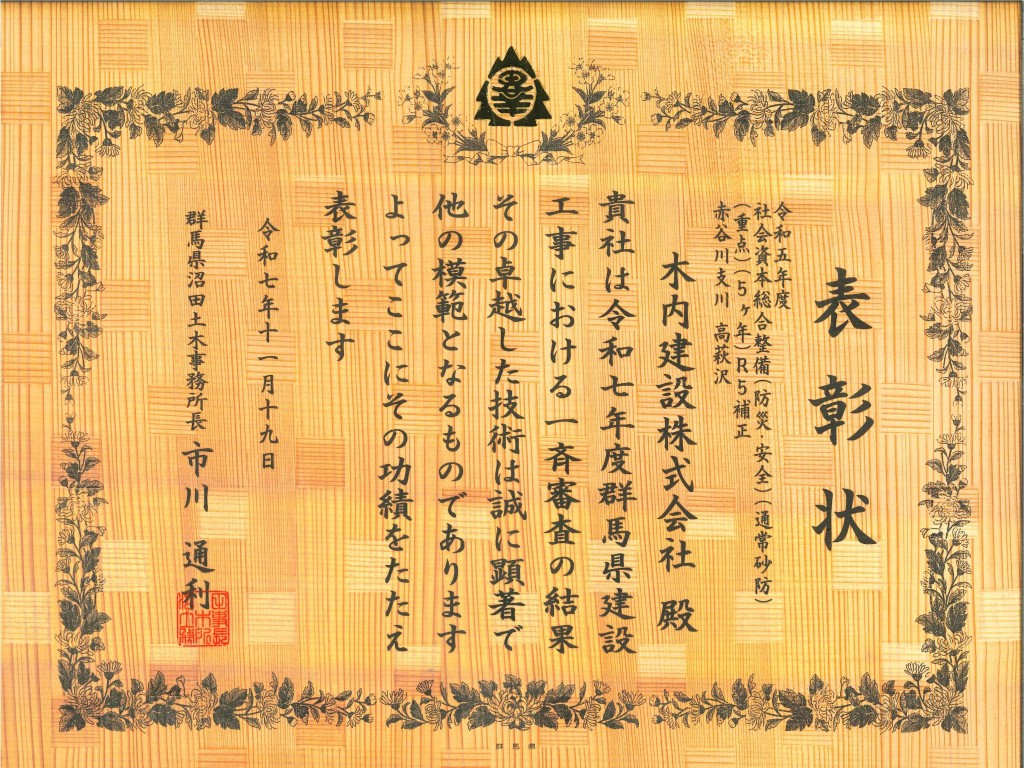 表彰状
令和五年度
社会資本総合整備(防災・安全)(通常砂防)
(重点)(5ヶ年)R5補正
赤谷川支川 高萩沢
木内建設株式会社 殿
貴社は令和七年度群馬県建設
工事における一斉審査の結果
その卓越した技術は誠に顕著で
他の模範となるものであります
よってここにその功績をたたえ
表彰します
令和七年十一月十九日
群馬県沼田土木事務所長 市川 通利
群馬県